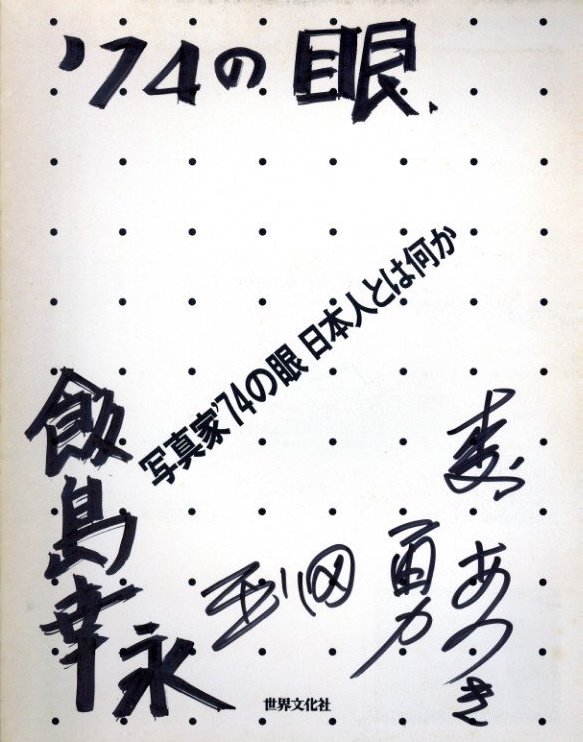 '74の眼、
写真家'74の眼 日本人とは何か
飯島幸永
玉田 勇
あつき
世界文化社